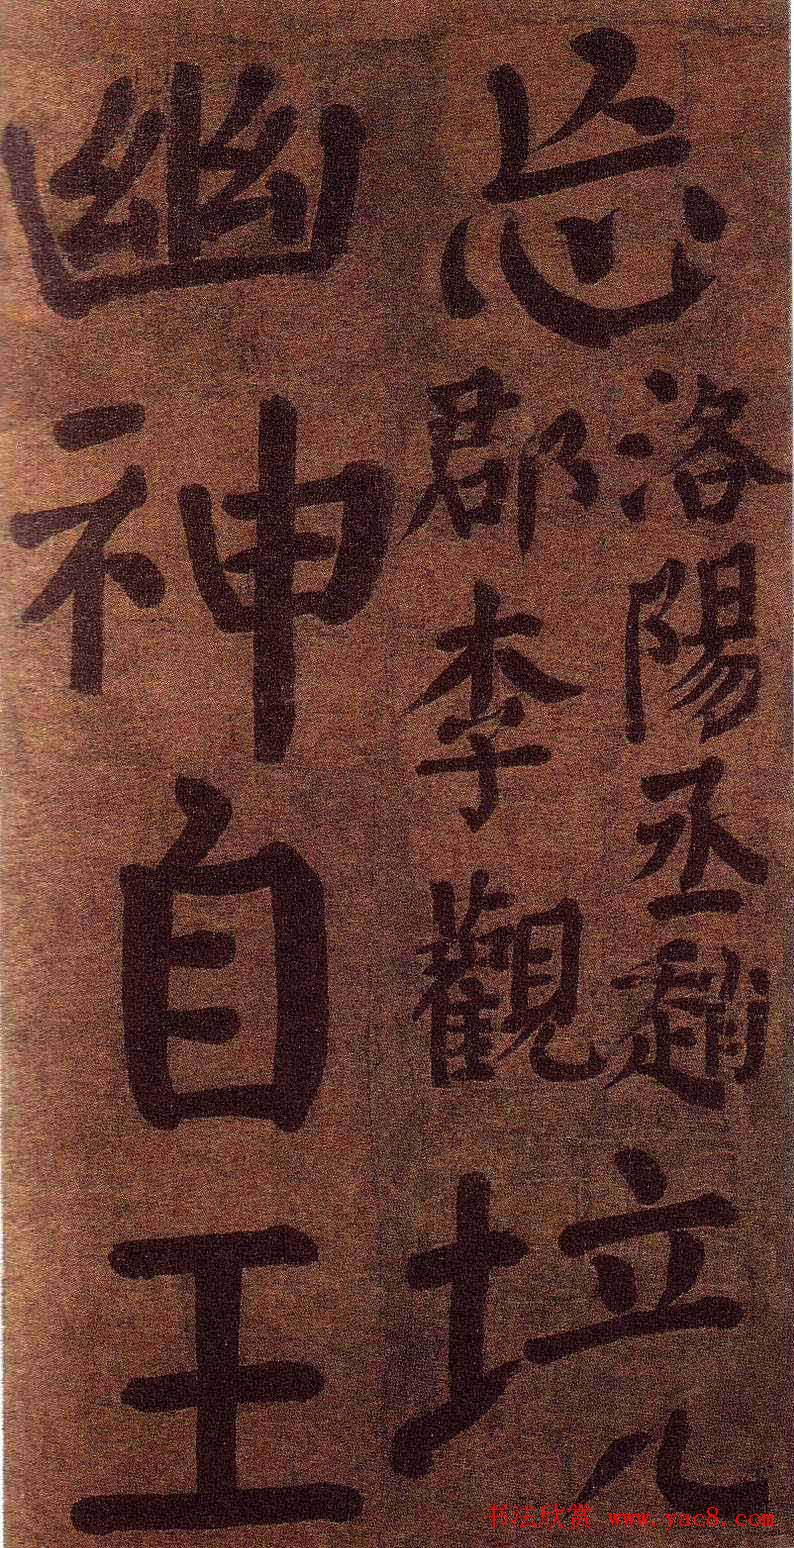 洛陽丞趙
郡李觀
境
幽神自王
书法欣赏 www.yac8.com